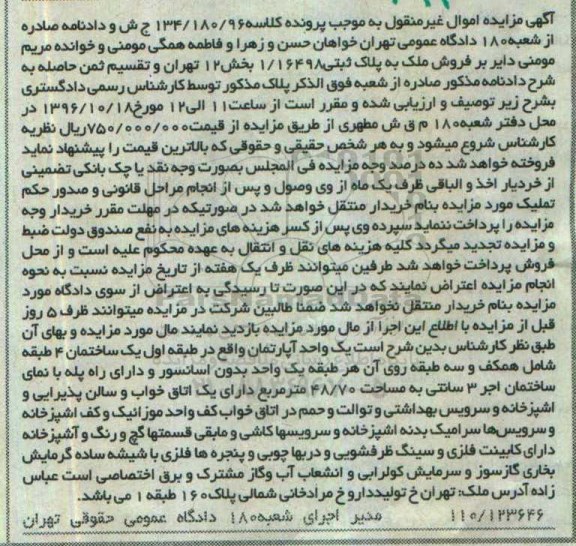 آگهی مزایده اموال غیرمنقول به موجب پرونده کلاسه ۱۳۴/۱۸۰/۹۶ ج ش و دادنامه صادره
از شعبه ۱۸۰ دادگاه عمومی تهران خواهان حسن و زهرا و فاطمه همگی مومنی و خوانده مریم
مومنی دایر بر فروش ملک به پلاک ثبتی ۱/۱۶۴۹۸ بخش ۱۲ تهران و تقسیم ثمن حاصله به
شرح دادنامه مذکور صادره از شعبه فوق الذکر پلاک مذکور توسط کارشناس رسمی دادگستری
بشرح زیر توصیف و ارزیابی شده و مقرر است از ساعت ۱۱ الی ۱۲ مورخ ۱۳۹۶/۱۰/۱۸ در
محل دفتر شعبه ۱۸۰ م ق ش مطهری از طریق مزایده از قیمت ۷۵۰/۰۰۰/۰۰۰ ریال نظریه
کارشناس شروع میشود و به هر شخص حقیقی و حقوقی که بالاترین قیمت را پیشنهاد نماید
فروخته خواهد شد ده درصد وجه مزایده فی المجلس بصورت وجه نقد یا چک بانکی تضمینی
از خریدار اخذ و الباقی ظرف یک ماه از وی وصول و پس از انجام مراحل قانونی و صدور حکم
تملیک مورد مزایده بنام خریدار منتقل خواهد شد در صورتیکه در مهلت مقرر خریدار وجه
مزایده را پرداخت ننماید سپرده وی پس از کسر هزینه های مزایده به نفع صندوق دولت ضبط
و مزایده تجدید میگردد کلیه هزینه های نقل و انتقال به عهده محکوم علیه است و از محل
فروش پرداخت خواهد شد طرفین میتوانند ظرف یک هفته از تاریخ مزایده نسبت به نحوه
انجام مزایده اعتراض نمایند که در این صورت تا رسیدگی به اعتراض از سوی دادگاه مورد
مزایده بنام خریدار منتقل نخواهد شد ضمنا طالبین شرکت در مزایده میتوانند ظرف ۵ روز
قبل از مزایده با اطلاع این اجرا از مال مورد مزایده بازدید نمایند مال مورد مزایده و بهای آن
طبق نظر کارشناس بدین شرح است یک واحد آپارتمان واقع در طبقه اول یک ساختمان ۴ طبقه
شامل همکف و سه طبقه روی آن هر طبقه یک واحد بدون آسانسور و دارای راه پله با نمای
ساختمان اجر ۳ سانتی به مساحت ۳۸/۷۰ مترمربع دارای یک اتاق خواب و سالن پذیرایی و
اشپزخانه و سرویس بهداشتی و توالت و حمم در اتاق خواب کف واحد موزائیک و کف اشپزخانه
و سرویس‌ها سرامیک بدنه اشپزخانه و سرویسها کاشی و مابقی قسمتها گچ و رنگ و آشپزخانه
دارای کابینت فلزی و سینگ ظرفشویی و دربها چوبی و پنجره ها فلزی با شیشه ساده گرمایش
بخاری گازسوز و سرمایش کولرابی و انشعاب آب وگاز مشترک و برق اختصاصی است عباس
زاده آدرس ملک: تهران خ تولیددارو خ مرادخانی شمالی پلاک ۱۶۰ طبقه ۱ می باشد.
۱۱۰/۱۲۳۶۴۶ مدیر اجرای شعبه ۱۸۰ دادگاه عمومی حقوقی تهران